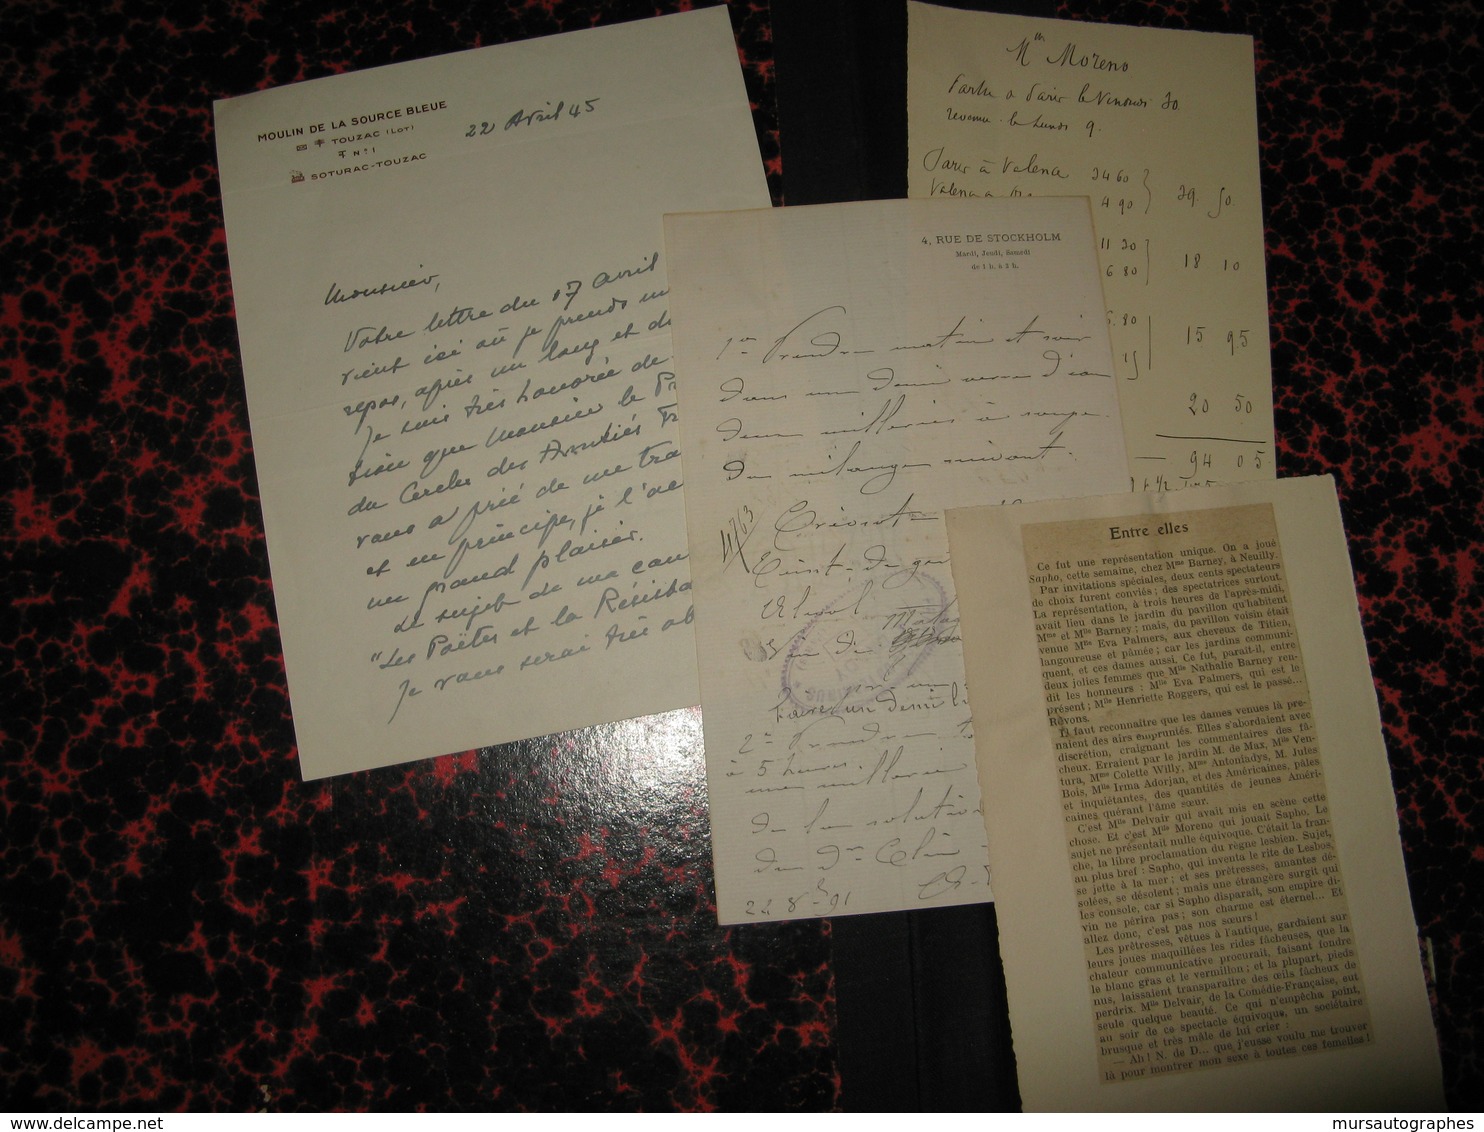 MOULIN DE LA SOURCE BLEUE
TOUZAC (LOT)
N° 1
SOTURAC-TOUZAC
22 Avril 45
Monsieur,
Votre lettre du 17 avril
vient ici où je prends un
repos, après un long et du
Je suis très honorée de
que Monsieur le Pr
du Cercle des Amitiés Fr
vous a prié de me tra
et en principe, je l'ac
un grand plaisir.
Le sujet de ma cau
"Les Poètes et la Résista
Je vous serai très ob
4, RUE DE STOCKHOLM
Mardi, Jeudi, Samedi
de 1 h. à 3 h.
1° Prendre matin et soir
dans un demi verre d'eau
deux cuillerées à soupe
du mélange suivant.
Teint. de
Alcool
Vin de
Faire un demi li
2° Prendre
à 5 heures.
une cuillerée
de la solution
du Dr Clin
22 8 91
Mm Moreno
Paris le 30
revenue le Lundi 9.
Paris à Valence 34 60
Valence 4 90
39. 50.
11 30
6 80
18 10
15 95
20 50
94 05
Entre elles
Ce fut une représentation unique. On a joué
Sapho, cette semaine, chez Mme Barney, à Neuilly.
Par invitations spéciales, deux cents spectateurs
de choix furent conviés; des spectatrices surtout.
La représentation, à trois heures de l'après-midi,
avait lieu dans le jardin du pavillon qu'habitent
Mme et Mlle Barney; mais, du pavillon voisin était
venue Mlle Eva Palmers, aux cheveux de Titien,
langoureuse et pâmée; car les jardins communi-
quent, et ces dames aussi. Ce fut, paraît-il, entre
deux jolies femmes que Mlle Nathalie Barney ren-
dit les honneurs : Mlle Eva Palmers, qui est le
présent; Mlle Henriette Roggers, qui est le passé...
Rêvons.
Il faut reconnaître que les dames venues là pre-
naient des airs empruntés. Elles s'abordaient avec
discrétion, craignant les commentaires des fâ-
cheux. Erraient par le jardin M. de Max, Mlle Ven-
tura, Mme Colette Willy, Mme Antonladys, M. Jules
Bois, Mlle Irma Adorjan, et des Américaines, pâles
et inquiétantes, des quantités de jeunes Améri-
caines quérant l'âme sœur.
C'est Mlle Delvair qui avait mis en scène cette
chose. Et c'est Mlle Moreno qui jouait Sapho. Le
sujet ne présentait nulle équivoque. C'était la fran-
che, la libre proclamation du règne lesbien. Sujet,
au plus bref : Sapho, qui inventa le rite de Lesbos,
se jette à la mer; et ses prêtresses, amantes dé-
solées, se désolent; mais une étrangère surgit qui
les console, car si Sapho disparaît, son empire di-
vin ne périra pas; son charme est éternel... Et
allez donc, c'est pas nos sœurs!
Les prêtresses, vêtues à l'antique, gardaient sur
leurs joues maquillées les rides fâcheuses, que la
chaleur communicative procurait, faisant fondre
la blanc gras et le vermillon; et la plupart, pieds
nus, laissaient transparaître des œils fâcheux de
perdrix. Mlle Delvair, de la Comédie-Française, eut
seule quelque beauté. Ce qui n'empêcha point,
au soir de ce spectacle équivoque, un sociétaire
brusque et très mâle de lui crier :
— Ah! N. de D... que j'eusse voulu me trouver
là pour montrer mon sexe à toutes ces femelles!
delcampe.net
mursautographes